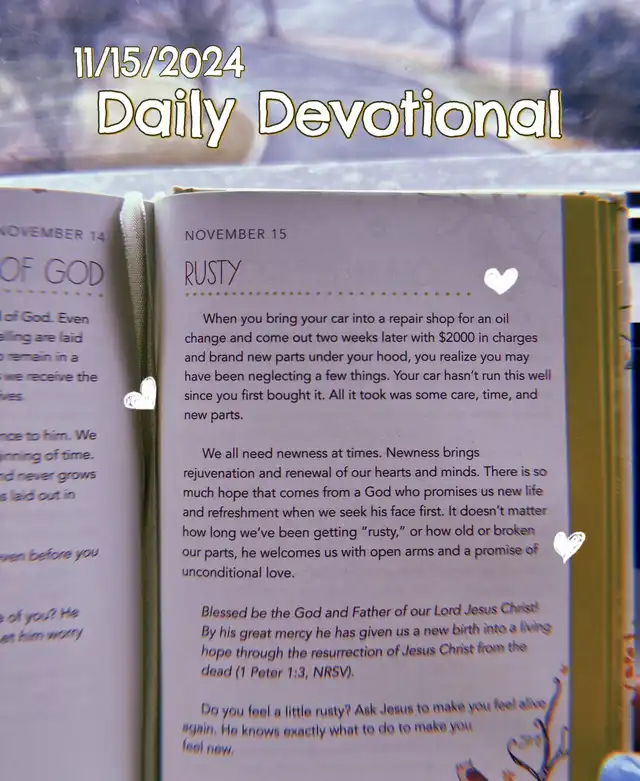 11/15/2024
Daily Devotional
NOVEMBER 14
OF GOD
of God. Even
are laid
remain in a
we receive the
nce to him. We
inning of time.
nd never grows
s laid out in
even before you
of you? He
him worry
NOVEMBER 15
RUSTY
When you bring your car into a repair shop for an oil
change and come out two weeks later with $2000 in charges
and brand new parts under your hood, you realize you may
have been neglecting a few things. Your car hasn't run this well
since you first bought it. All it took was some care, time, and
new parts.
We all need newness at times. Newness brings
rejuvenation and renewal of our hearts and minds. There is so
much hope that comes from a God who promises us new life
and refreshment when we seek his face first. It doesn't matter
how long we've been getting "rusty," or how old or broken
our parts, he welcomes us with open arms and a promise of
unconditional love.
Blessed be the God and Father of our Lord Jesus Christ!
By his great mercy he has given us a new birth into a living
hope through the resurrection of Jesus Christ from the
dead (1 Peter 1:3, NRSV).
Do you feel a little rusty? Ask Jesus to make you feel alive
again. He knows exactly what to do to make you
feel new.